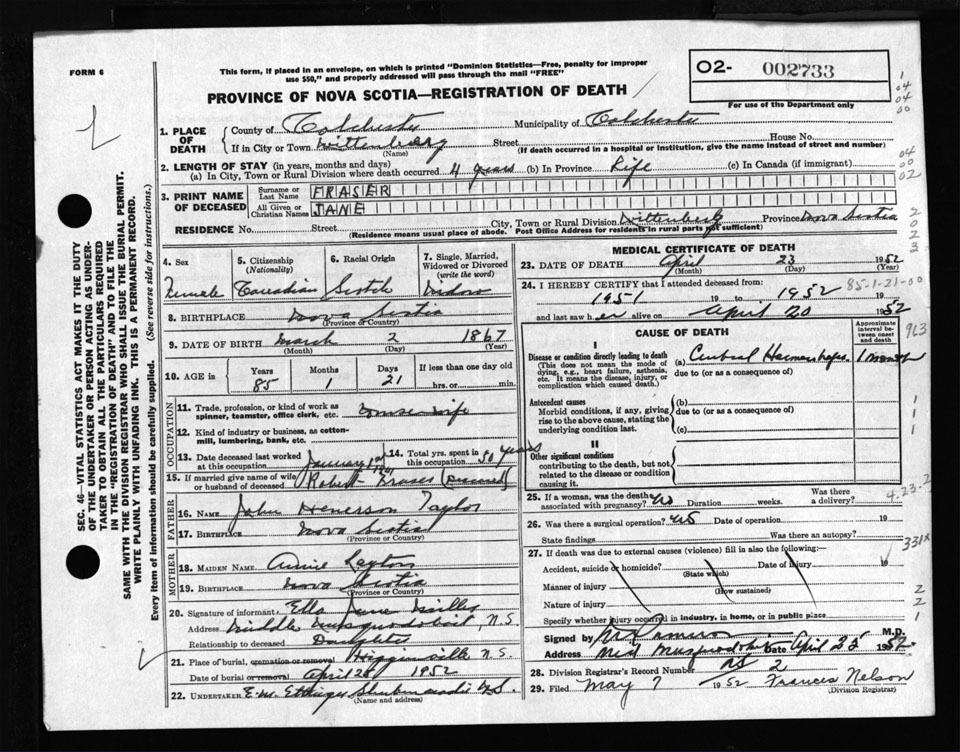 FORM 6
This form, if placed in an envelope, on which is printed "Dominion Statistics—Free, penalty for improper
use $50," and properly addressed will pass through the mail "FREE"
O2- 002733
For use of the Department only
PROVINCE OF NOVA SCOTIA—REGISTRATION OF DEATH
1. PLACE OF DEATH
County of Colchester Municipality of Colchester
If in City or Town Wittenberg Street House No.
(Name) (If death occurred in a hospital or institution, give the name instead of street and number)
2. LENGTH OF STAY (in years, months and days)
(a) In City, Town or Rural Division where death occurred 4 years (b) In Province Life (c) In Canada (if immigrant)
3. PRINT NAME OF DECEASED
Surname or Last Name FRASER
All Given or Christian Names JANE
RESIDENCE No. Street City, Town or Rural Division Wittenberg Province Nova Scotia
(Residence means usual place of abode. Post Office Address for residents in rural parts not sufficient)
4. Sex Female
5. Citizenship (Nationality) Canadian
6. Racial Origin Scotch
7. Single, Married, Widowed or Divorced (write the word) Widow
8. BIRTHPLACE Nova Scotia
(Province or Country)
9. DATE OF BIRTH March 2 1867
(Month) (Day) (Year)
10. AGE in Years 85 Months 1 Days 21 If less than one day old hrs. or min.
OCCUPATION
11. Trade, profession, or kind of work as spinner, teamster, office clerk, etc. House wife
12. Kind of industry or business, as cotton-mill, lumbering, bank, etc.
13. Date deceased last worked at this occupation January 1st
14. Total yrs. spent in this occupation 50 years
15. If married give name of wife or husband of deceased Robert Fraser (Deceased)
FATHER
16. Name John Henerson Taylor
17. Birthplace Nova Scotia
(Province or Country)
MOTHER
18. MAIDEN NAME Annie Layton
19. BIRTHPLACE Nova Scotia
(Province or Country)
20. Signature of informant Ella Jane
Address Middle Musquodoboit, N.S.
Relationship to deceased Daughter
21. Place of burial, cremation or removal Higginsville N.S.
Date of burial or removal April 25 1952
22. UNDERTAKER E.M. Ettinger Shubenacadie N.S.
(Name and address)
MEDICAL CERTIFICATE OF DEATH
23. DATE OF DEATH April 23 1952
(Month) (Day) (Year)
24. I HEREBY CERTIFY that I attended deceased from:
1951 19 to 1952 19
and last saw her alive on April 20 1952
85-1-21-00
CAUSE OF DEATH
Approximate interval between onset and death
I
Disease or condition directly leading to death
(This does not mean the mode of dying, e.g., heart failure, asthenia, etc. It means the disease, injury, or complication which caused death.)
(a) Cerebral Haemorrhage
due to (or as a consequence of)
Antecedent causes
Morbid conditions, if any, giving rise to the above cause, stating the underlying condition last.
(b)
due to (or as a consequence of)
(c)
II
Other significant conditions
contributing to the death, but not related to the disease or condition causing it.
25. If a woman, was the death associated with pregnancy? No Duration weeks. Was there a delivery?
26. Was there a surgical operation? No Date of operation 19
State findings Was there an autopsy?
27. If death was due to external causes (violence) fill in also the following:—
Accident, suicide or homicide? Date of injury 19
(State which)
Manner of injury
(How sustained)
Nature of injury
Specify whether injury occurred in industry, in home, or in public place
Signed by M.D.
Address Mid Musquodoboit Date April 25 1952
28. Division Registrar's Record Number No 2
29. Filed May 7 1952 Frances Nelson
(Division Registrar)
SEC. 46—VITAL STATISTICS ACT MAKES IT THE DUTY
OF THE UNDERTAKER OR PERSON ACTING AS UNDER-
TAKER TO OBTAIN ALL THE PARTICULARS REQUIRED
IN THE "REGISTRATION OF DEATH" AND TO FILE THE
SAME WITH THE DIVISION REGISTRAR WHO SHALL ISSUE THE BURIAL PERMIT.
WRITE PLAINLY WITH UNFADING INK. THIS IS A PERMANENT RECORD.
Every item of information should be carefully supplied. (See reverse side for instructions.)
1
04
04
00
04
00
02
2
0
2
3
963
1
1
1
4-23-2
331x
2
2
1